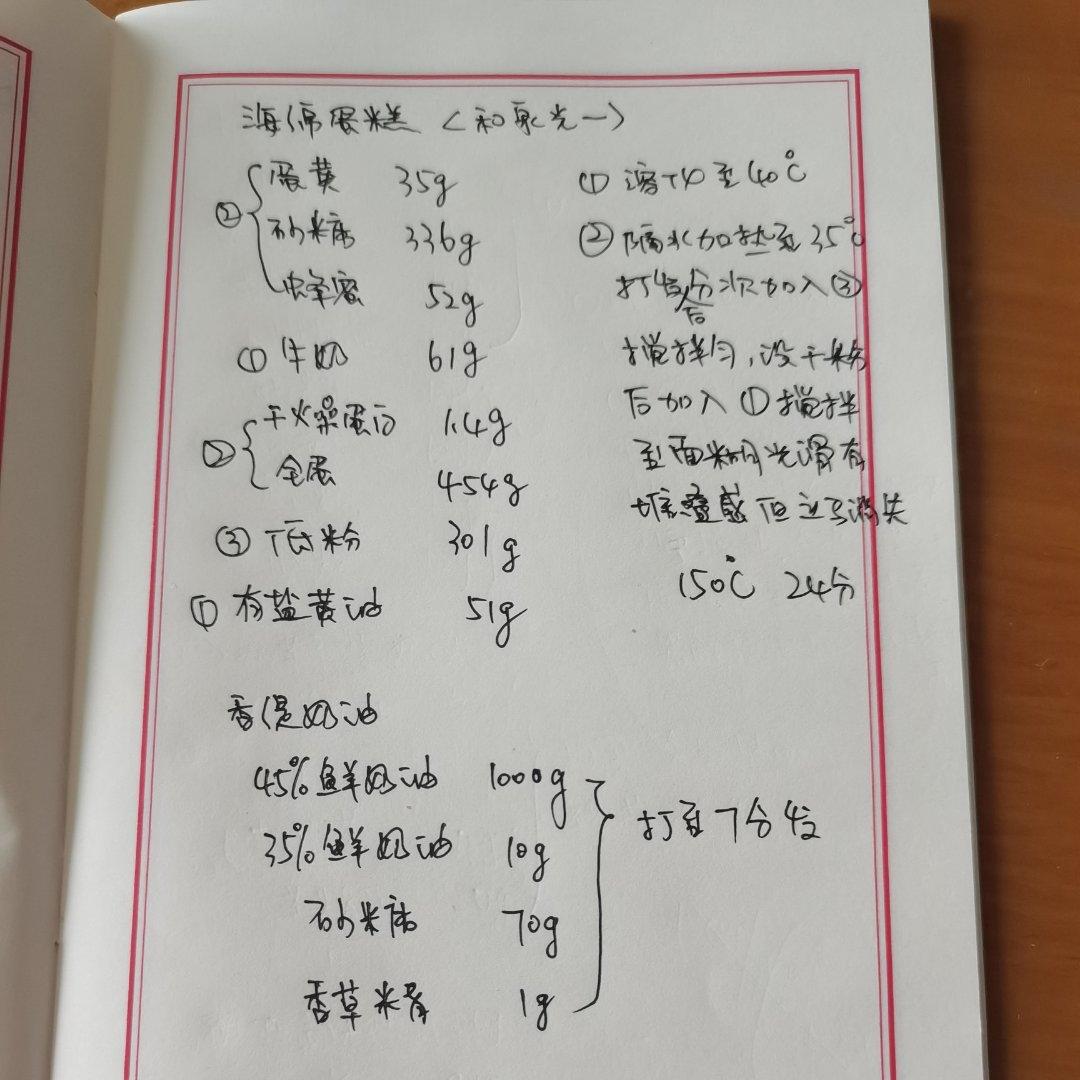 海绵蛋糕 <和泉光一>
② 蛋黄 35g
砂糖 336g
蜂蜜 52g
① 牛奶 61g
② 干燥蛋白 1.4g
全蛋 454g
③ 低粉 301g
① 有盐黄油 51g
① 溶化至40℃
② 隔水加热至35℃
打发后分次加入③
搅拌匀,没干粉
后加入①搅拌
至面糊光滑有
堆叠感但立马消失
150℃ 24分
香缇奶油
45%鲜奶油 1000g
35%鲜奶油 10g
砂糖 70g
香草精 1g
打至7分发